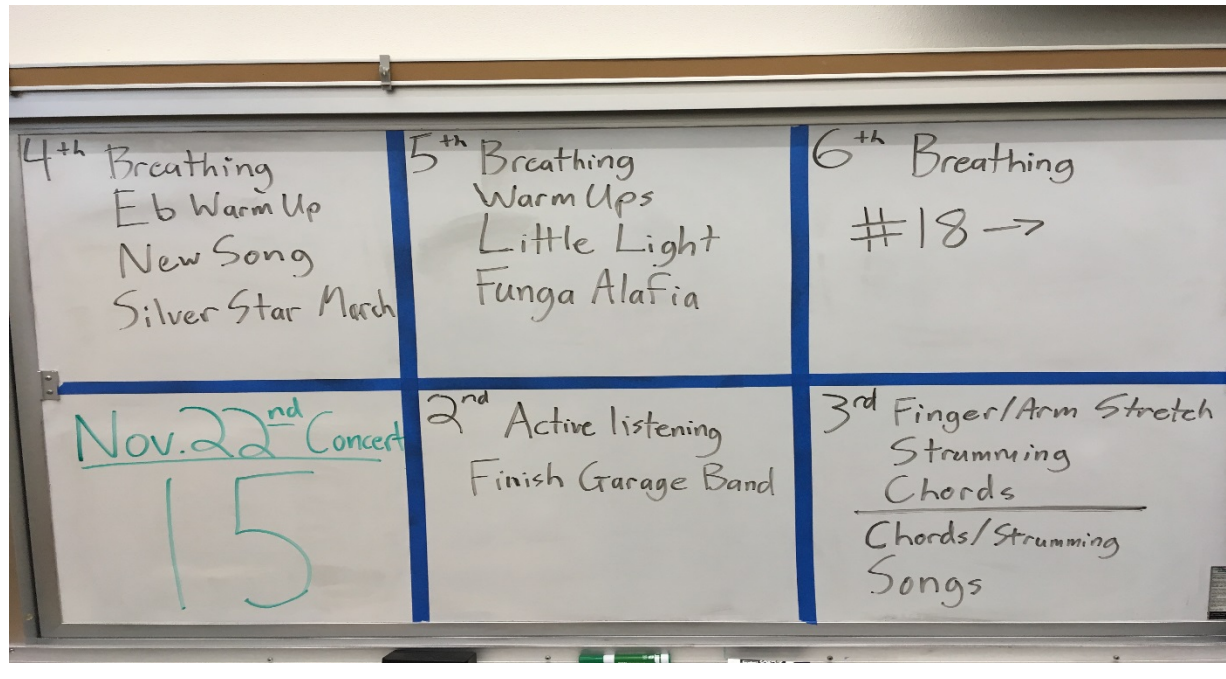 4th Breathing
Eb Warm Up
New Song
Silver Star March
5th Breathing
Warm Ups
Little Light
Funga Alafia
6th Breathing
#18 →
Nov. 22nd Concert
15
2nd Active listening
Finish Garage Band
3rd Finger/Arm Stretch
Strumming
Chords
Chords/Strumming
Songs